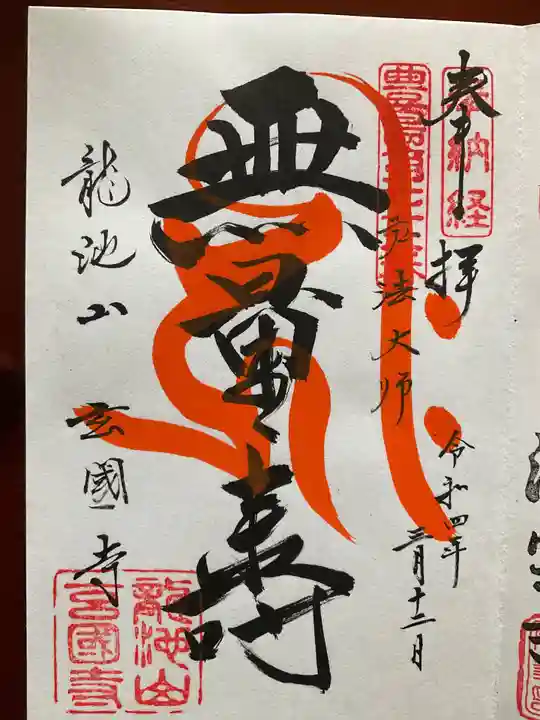 奉拝
奉納経
令和四年
三月十二日
豊島八十八ヶ所
弘法大師
無量寿
龍池山
玄國寺
龍池山
玄國寺